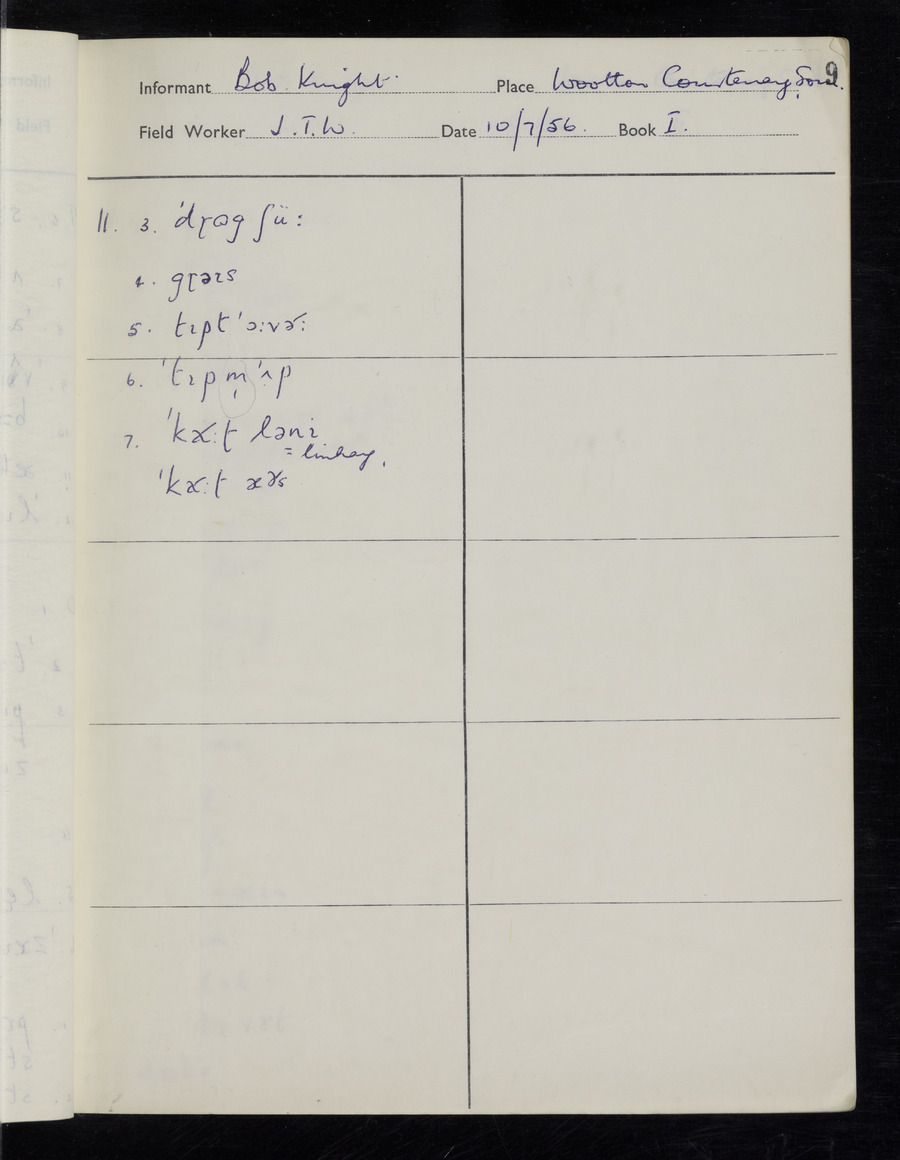 9
Informant Bob Knight. Place Wootton Courtenay, Som.
Field Worker J.T.W. Date 10/7/56. Book I.
11. 3. ˈdɽɷg ʃüː
4. gɽəɪs
5. tɪpt ˈɔːvəʳː
6. ˈtɪp m̩ ˈʌp
7. ˈkæːɽt lənɪ
= linhay.
ˈkæːɽt